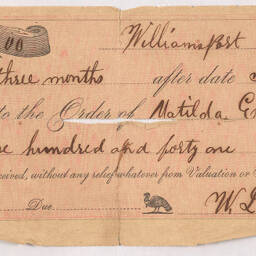 00
Williamsport
three months after date
to the Order of Matilda
hundred and forty one
without any relief whatever from Valuation or
Due
W.